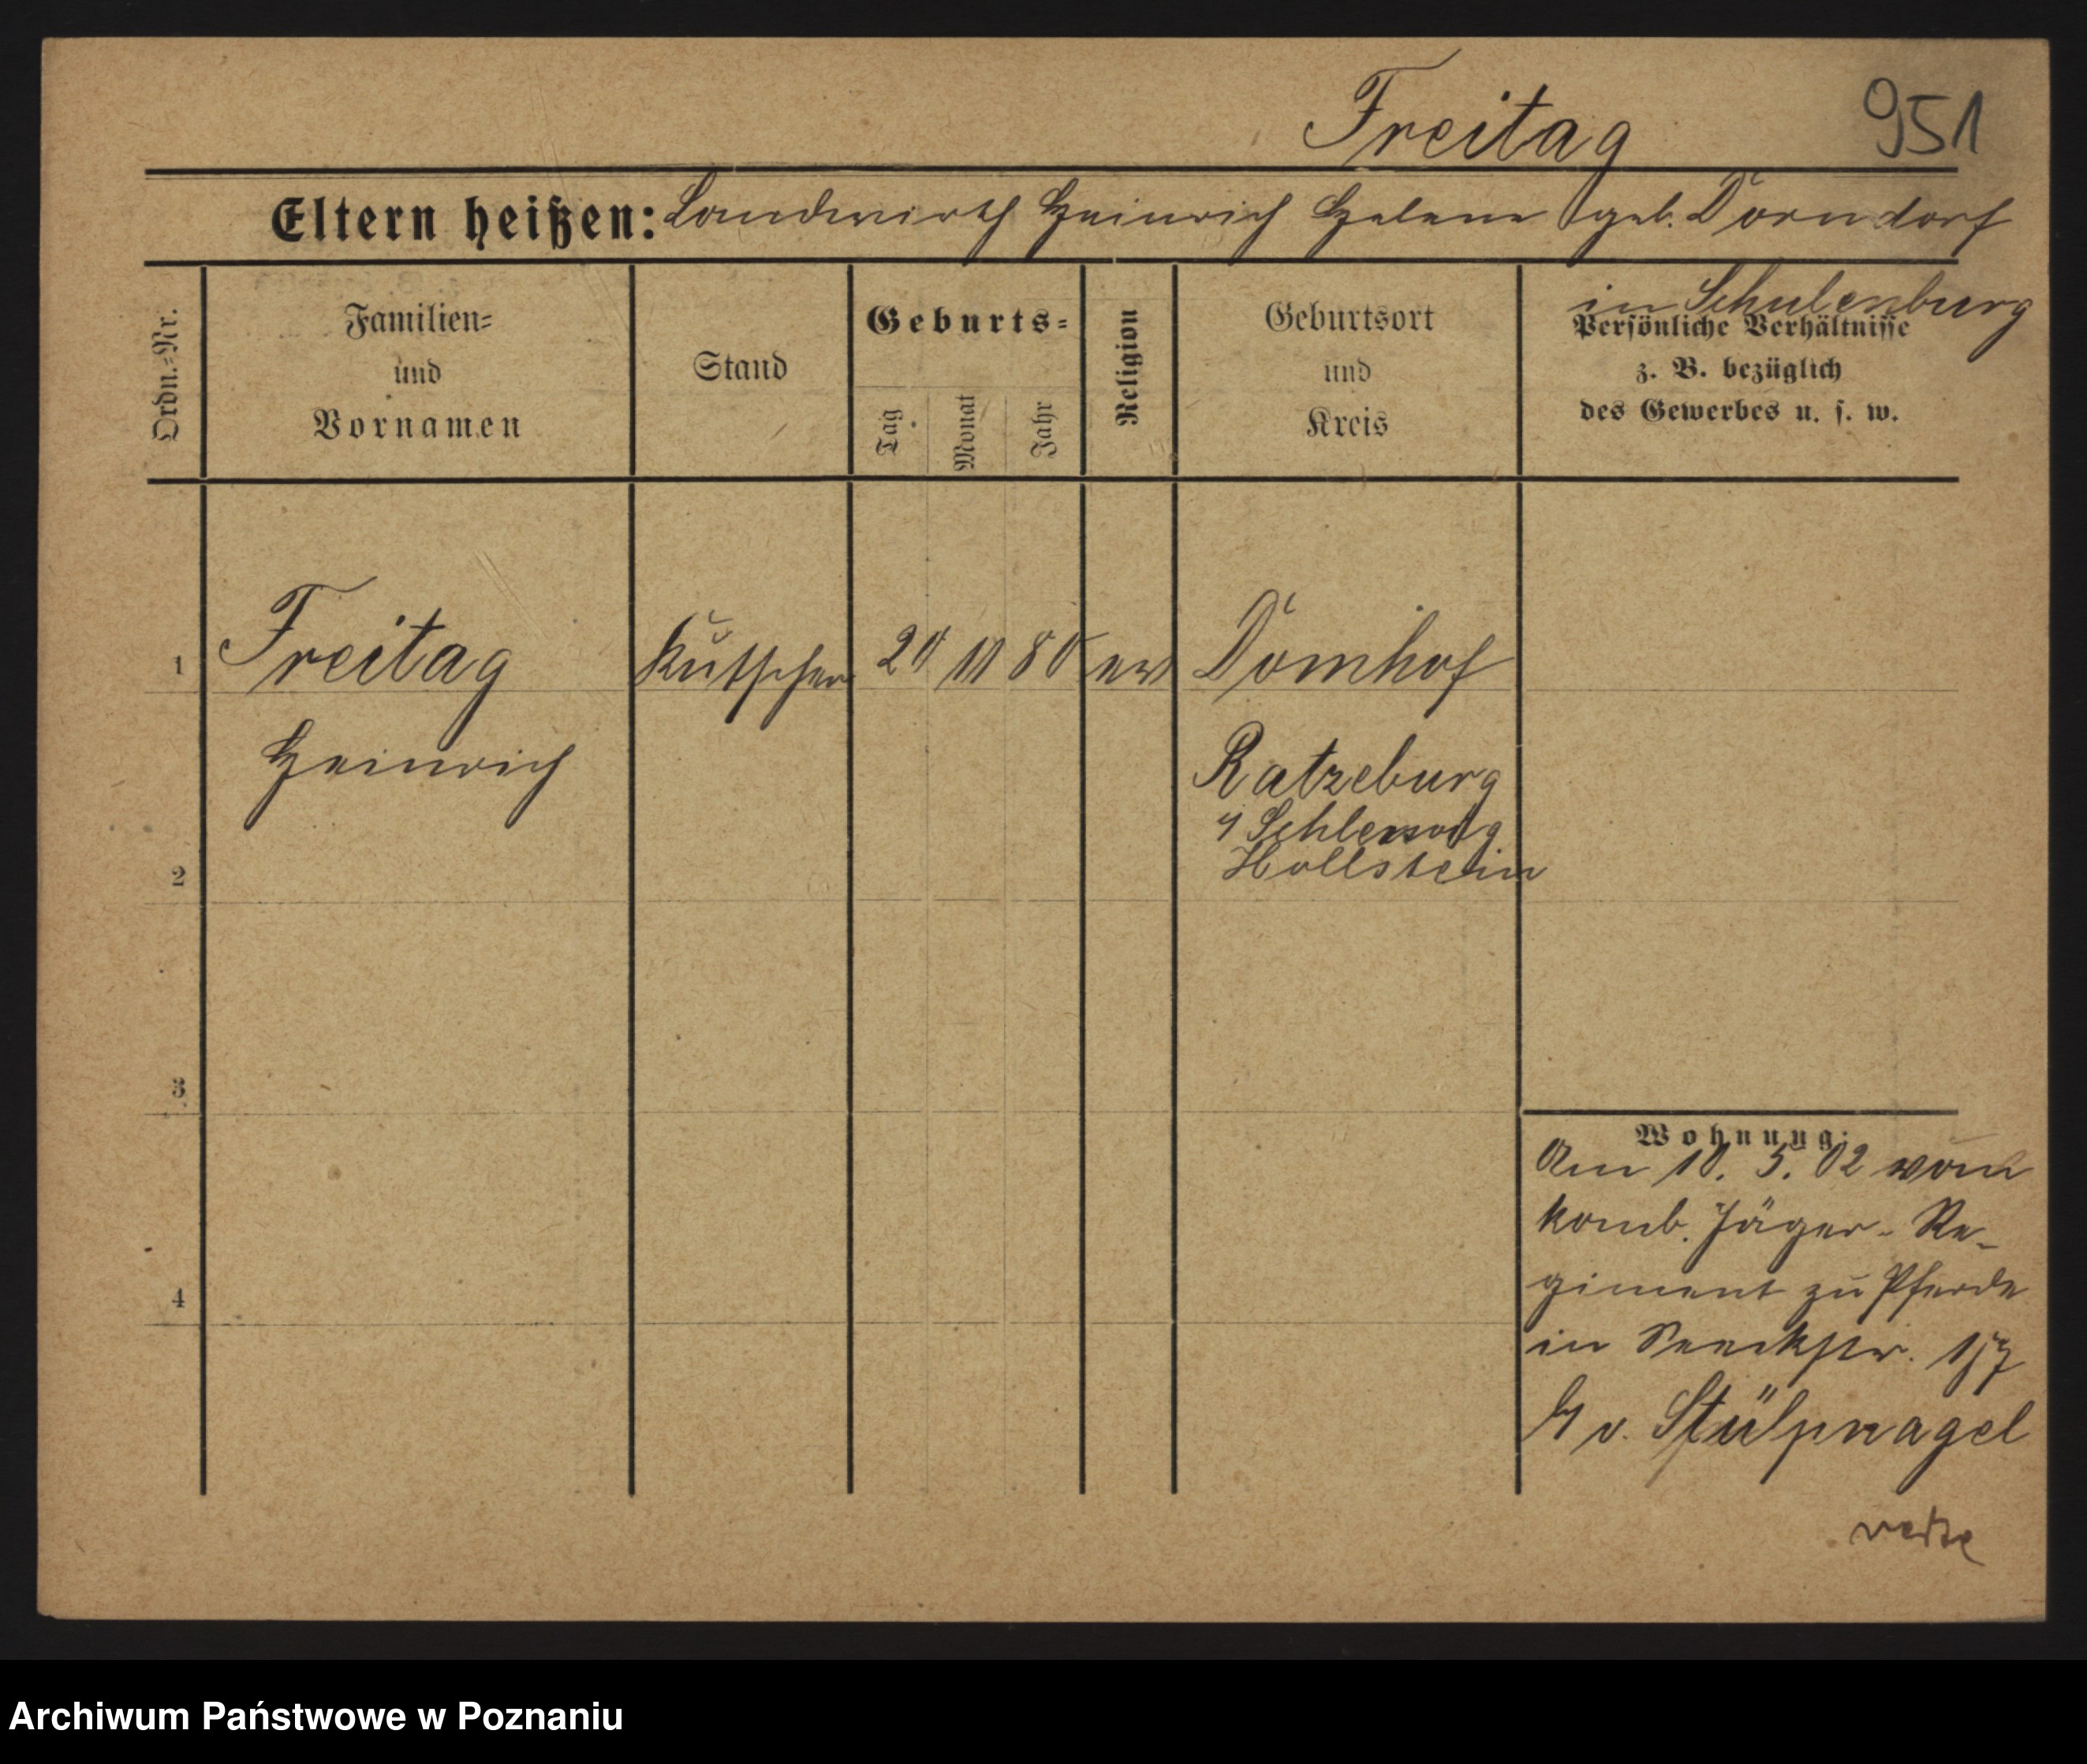 Freitag 951
Eltern heißen: Landwirth Heinrich Helene geb. Dorndorf
in Schulenburg
Ordn.=Nr.
Familien=
und
Vornamen
Stand
Geburts=
Tag
Monat
Jahr
Religion
Geburtsort
und
Kreis
Persönliche Verhältnisse
z. B. bezüglich
des Gewerbes u. s. w.
1 Freitag Kutscher 20 11 80 ev Domhof
Heinrich
Ratzeburg
Schleswig
Hollstein
2
3
4
Wohnung:
Am 10. 5. 02 vom
komb. Jäger-Re-
giment zu Pferde
in 157
b/ v. Stülpnagel
Archiwum Państwowe w Poznaniu